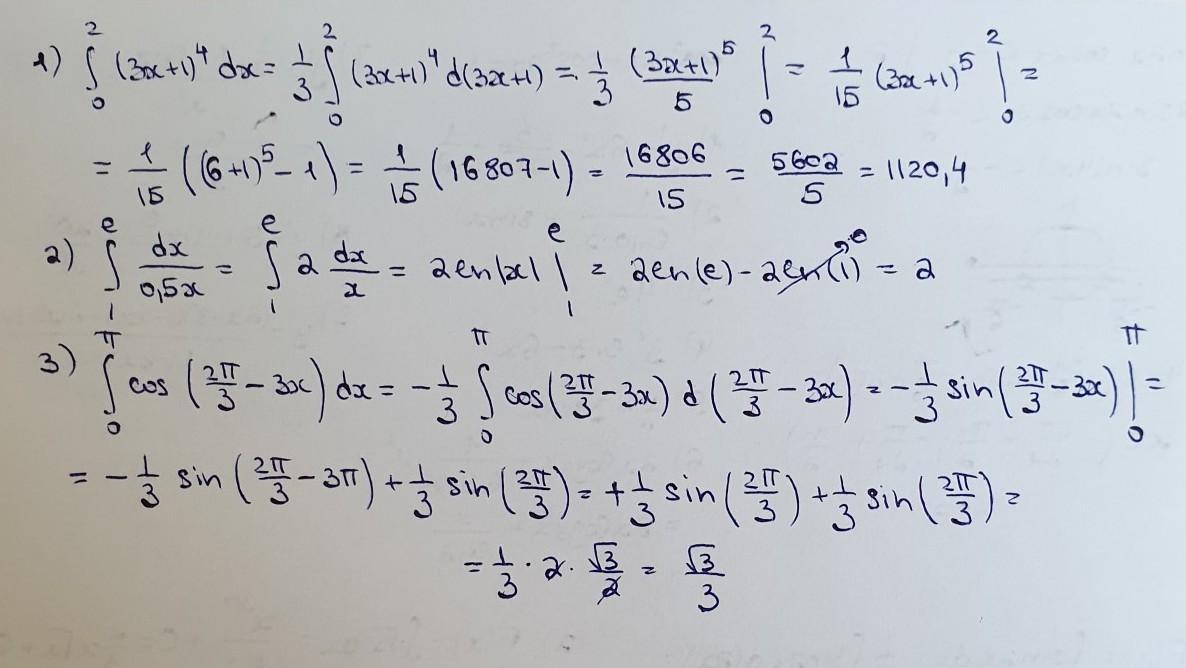 1) ∫₀² (3x+1)⁴ dx = 1/3 ∫₀² (3x+1)⁴ d(3x+1) = 1/3 (3x+1)⁵/5 |₀² = 1/15 (3x+1)⁵ |₀² =
= 1/15 ((6+1)⁵ - 1) = 1/15 (16807-1) = 16806/15 = 5602/5 = 1120,4
2) ∫₁ᵉ dx/0,5x = ∫₁ᵉ 2 dx/x = 2 ln|x| |₁ᵉ = 2ln(e) - 2ln(1)→0 = 2
3) ∫₀^π cos (2π/3 - 3x) dx = -1/3 ∫₀^π cos(2π/3 - 3x) d (2π/3 - 3x) = -1/3 sin(2π/3 - 3x) |₀^π =
= -1/3 sin (2π/3 - 3π) + 1/3 sin (2π/3) = +1/3 sin (2π/3) + 1/3 sin (2π/3) =
= 1/3 · 2 · √3/2 = √3/3